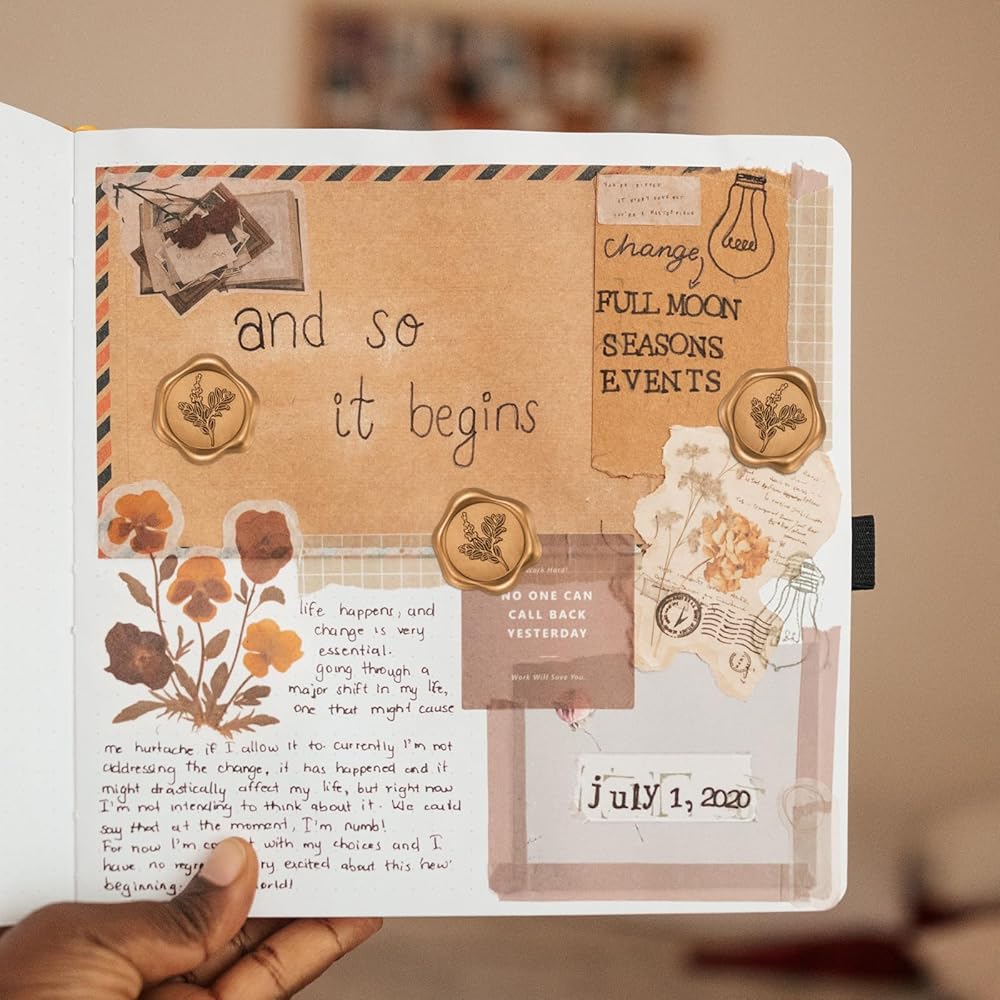 YOU'RE
IT
YOU'RE A MASTERPIECE
change,
FULL MOON
SEASONS
EVENTS
and so
it begins
Work Hard!
NO ONE CAN
CALL BACK
YESTERDAY
Work Will Save You.
life happens, and
change is very
essential.
going through a
major shift in my life,
one that might cause
me hurtache if I allow it to. currently I'm not
addressing the change, it has happened and it
might drastically affect my life, but right now
I'm not intending to think about it. We could
say that at the moment, I'm numb!
For now I'm with my choices and I
have no excited about this 'new'
beginning.
july 1, 2020